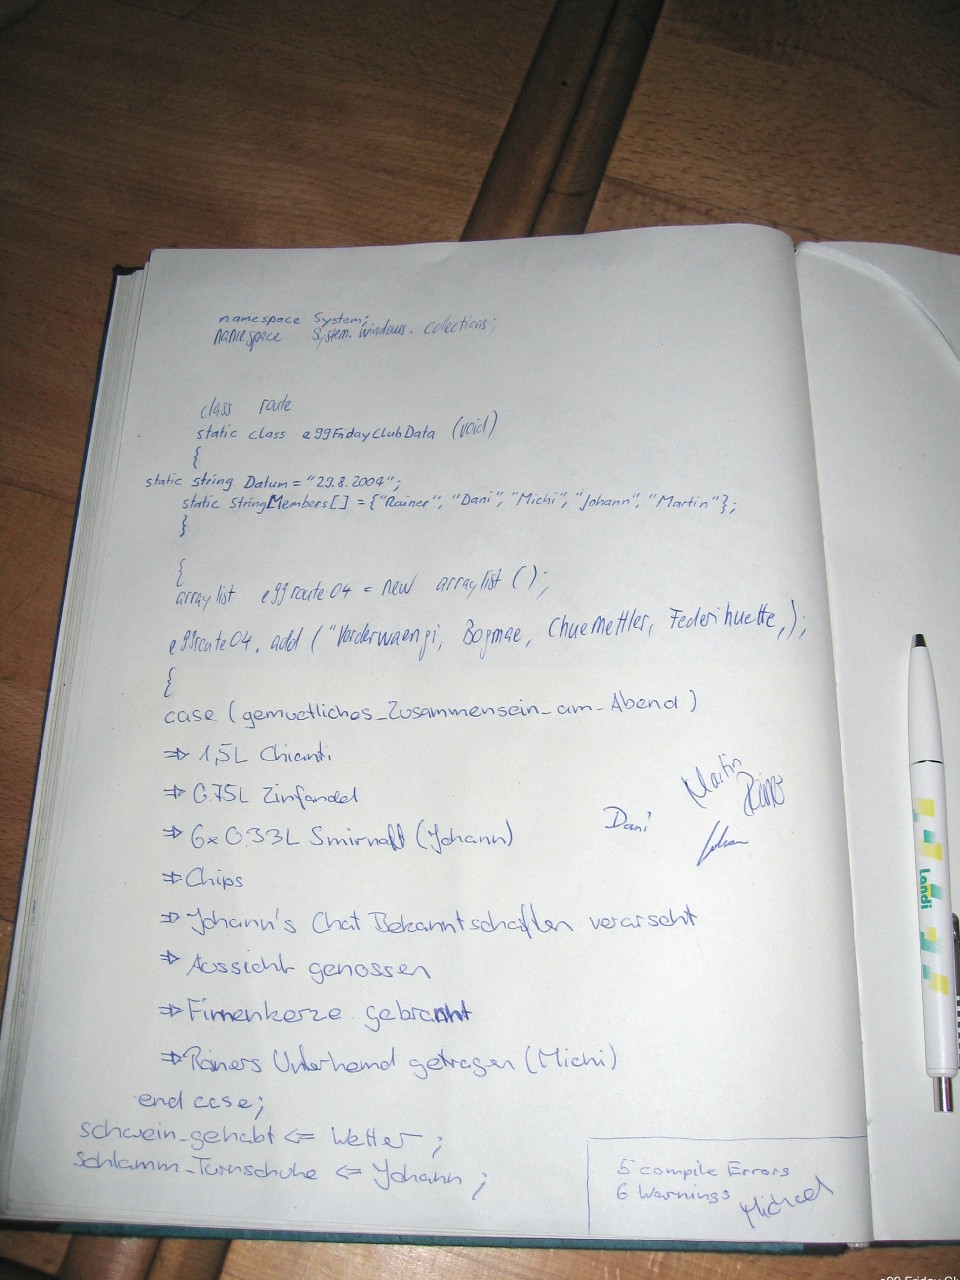 namespace System;
namespace System.Windows.collections;
class route
static class e99FridayClubData (void)
{
static string Datum = "29.8.2004";
static StringMembers[] = {"Rainer", "Dani", "Michi", "Johann", "Martin"};
}
{
arraylist e99route04 = new arraylist ();
e99route04.add ("Vorderwaengi, Bogmae, Chuemettler, Federihuette,);
{
case (gemuetliches_Zusammensein_am_Abend)
⇒ 1,5L Chianti
⇒ 0.75L Zinfandel
⇒ 6x 0.33L Smirnoff (Johann)
⇒ Chips
⇒ Johann's Chat Bekanntschaften verarscht
⇒ Aussicht genossen
⇒ Firmenkerze gebrannt
⇒ Rainers Unterhemd getragen (Michi)
end case;
schwein_gehabt ⇐ Wetter;
schlamm_Turnschuhe ⇐ Johann;
Martin
Dani
5 compile Errors
6 Warnings
Michael
Landi